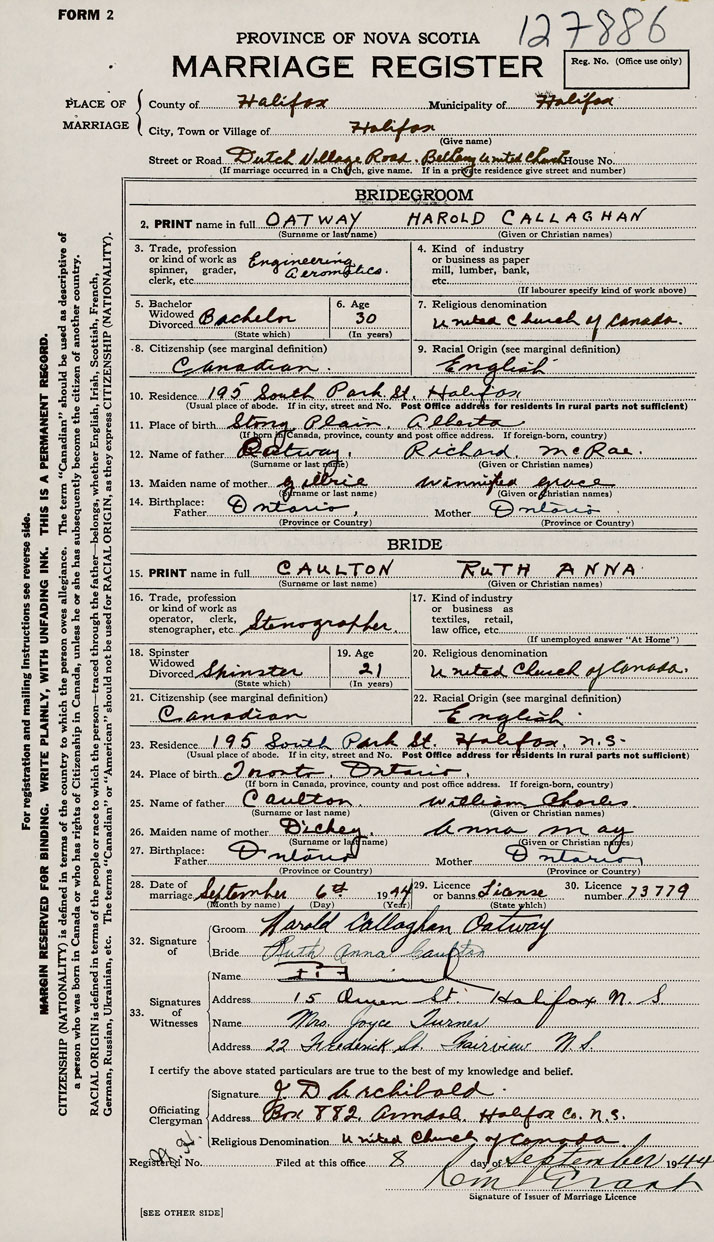 FORM 2
127886
PROVINCE OF NOVA SCOTIA
MARRIAGE REGISTER
Reg. No. (Office use only)
PLACE OF MARRIAGE
County of Halifax Municipality of Halifax
City, Town or Village of Halifax
(Give name)
Street or Road Dutch Village Road. Bethany United Church House No.
(If marriage occurred in a Church, give name. If in a private residence give street and number)
BRIDEGROOM
2. PRINT name in full OATWAY HAROLD CALLAGHAN
(Surname or last name) (Given or Christian names)
3. Trade, profession or kind of work as spinner, grader, clerk, etc. Engineering
4. Kind of industry or business as paper mill, lumber, bank, etc.
(If labourer specify kind of work above)
5. Bachelor Widowed Divorced Bachelor
(State which)
6. Age 30
(In years)
7. Religious denomination
United Church of Canada.
8. Citizenship (see marginal definition)
Canadian.
9. Racial Origin (see marginal definition)
English
10. Residence 195 South Park St. Halifax
(Usual place of abode. If in city, street and No. Post Office address for residents in rural parts not sufficient)
11. Place of birth Stony Plain, Alberta
(If born in Canada, province, county and post office address. If foreign-born, country)
12. Name of father Oatway, Richard McRae.
(Surname or last name) (Given or Christian names)
13. Maiden name of mother Winnifed Grace
(Surname or last name) (Given or Christian names)
14. Birthplace: Father Ontario, Mother Ontario.
(Province or Country) (Province or Country)
BRIDE
15. PRINT name in full CAULTON RUTH ANNA
(Surname or last name) (Given or Christian names)
16. Trade, profession or kind of work as operator, clerk, stenographer, etc. Stenographer.
17. Kind of industry or business as textiles, retail, law office, etc.
(If unemployed answer "At Home")
18. Spinster Widowed Divorced Spinster
(State which)
19. Age 21
(In years)
20. Religious denomination
United Church of Canada.
21. Citizenship (see marginal definition)
Canadian
22. Racial Origin (see marginal definition)
English.
23. Residence 195 South Park St. Halifax, N.S.
(Usual place of abode. If in city, street and No. Post Office address for residents in rural parts not sufficient)
24. Place of birth Toronto, Ontario.
(If born in Canada, province, county and post office address. If foreign-born, country)
25. Name of father Caulton, William Charles.
(Surname or last name) (Given or Christian names)
26. Maiden name of mother Dickey, Anna May
(Surname or last name) (Given or Christian names)
27. Birthplace: Father Ontario Mother Ontario
(Province or Country) (Province or Country)
28. Date of marriage September 6th 1944
(Month by name) (Day) (Year)
29. Licence or banns License
(State which)
30. Licence number 73779
32. Signature of
Groom Harold Callaghan Oatway
Bride Ruth Anna Caulton
33. Signatures of Witnesses
Name
Address 15 Owen St. Halifax N.S.
Name Mrs. Joyce Turner
Address 22 Frederick St. Fairview N.S.
I certify the above stated particulars are true to the best of my knowledge and belief.
Officiating Clergyman
Signature J D Archibald.
Address Box 882. Armdale. Halifax Co. N.S.
Religious Denomination United Church of Canada.
Registered No. Filed at this office 8 day of September 1944
Grant
Signature of Issuer of Marriage Licence
[SEE OTHER SIDE]
For registration and mailing instructions see reverse side.
MARGIN RESERVED FOR BINDING. WRITE PLAINLY, WITH UNFADING INK. THIS IS A PERMANENT RECORD.
CITIZENSHIP (NATIONALITY) is defined in terms of the country to which the person owes allegiance. The term "Canadian" should be used as descriptive of
a person who was born in Canada or who has rights of Citizenship in Canada, unless he or she has subsequently become the citizen of another country.
RACIAL ORIGIN is defined in terms of the people or race to which the person—traced through the father—belongs, whether English, Irish, Scottish, French,
German, Russian, Ukrainian, etc. The terms "Canadian" or "American" should not be used for RACIAL ORIGIN, as they express CITIZENSHIP (NATIONALITY).